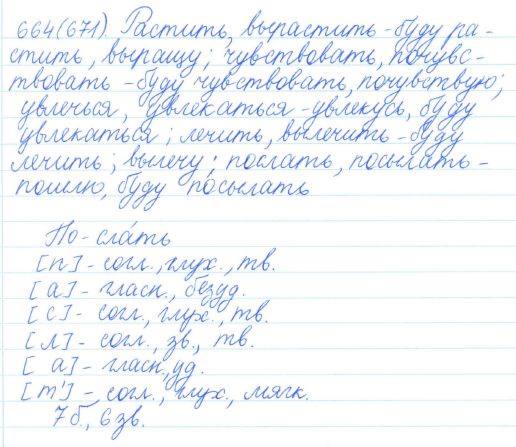 664(671). Растить, вырастить - буду ра-
стить, выращу; чувствовать, почувс-
твовать - буду чувствовать, почувствую;
увлечься, увлекаться - увлекусь, буду
увлекаться; лечить, вылечить - буду
лечить; вылечу; послать, посылать -
пошлю, буду посылать
По-сла́ть
[п] - согл., глух., тв.
[а] - гласн., безуд.
[с] - согл., глух., тв.
[л] - согл., зв., тв.
[а] - гласн, уд.
[т'] - согл., глух., мягк.
7б., 6 зв.